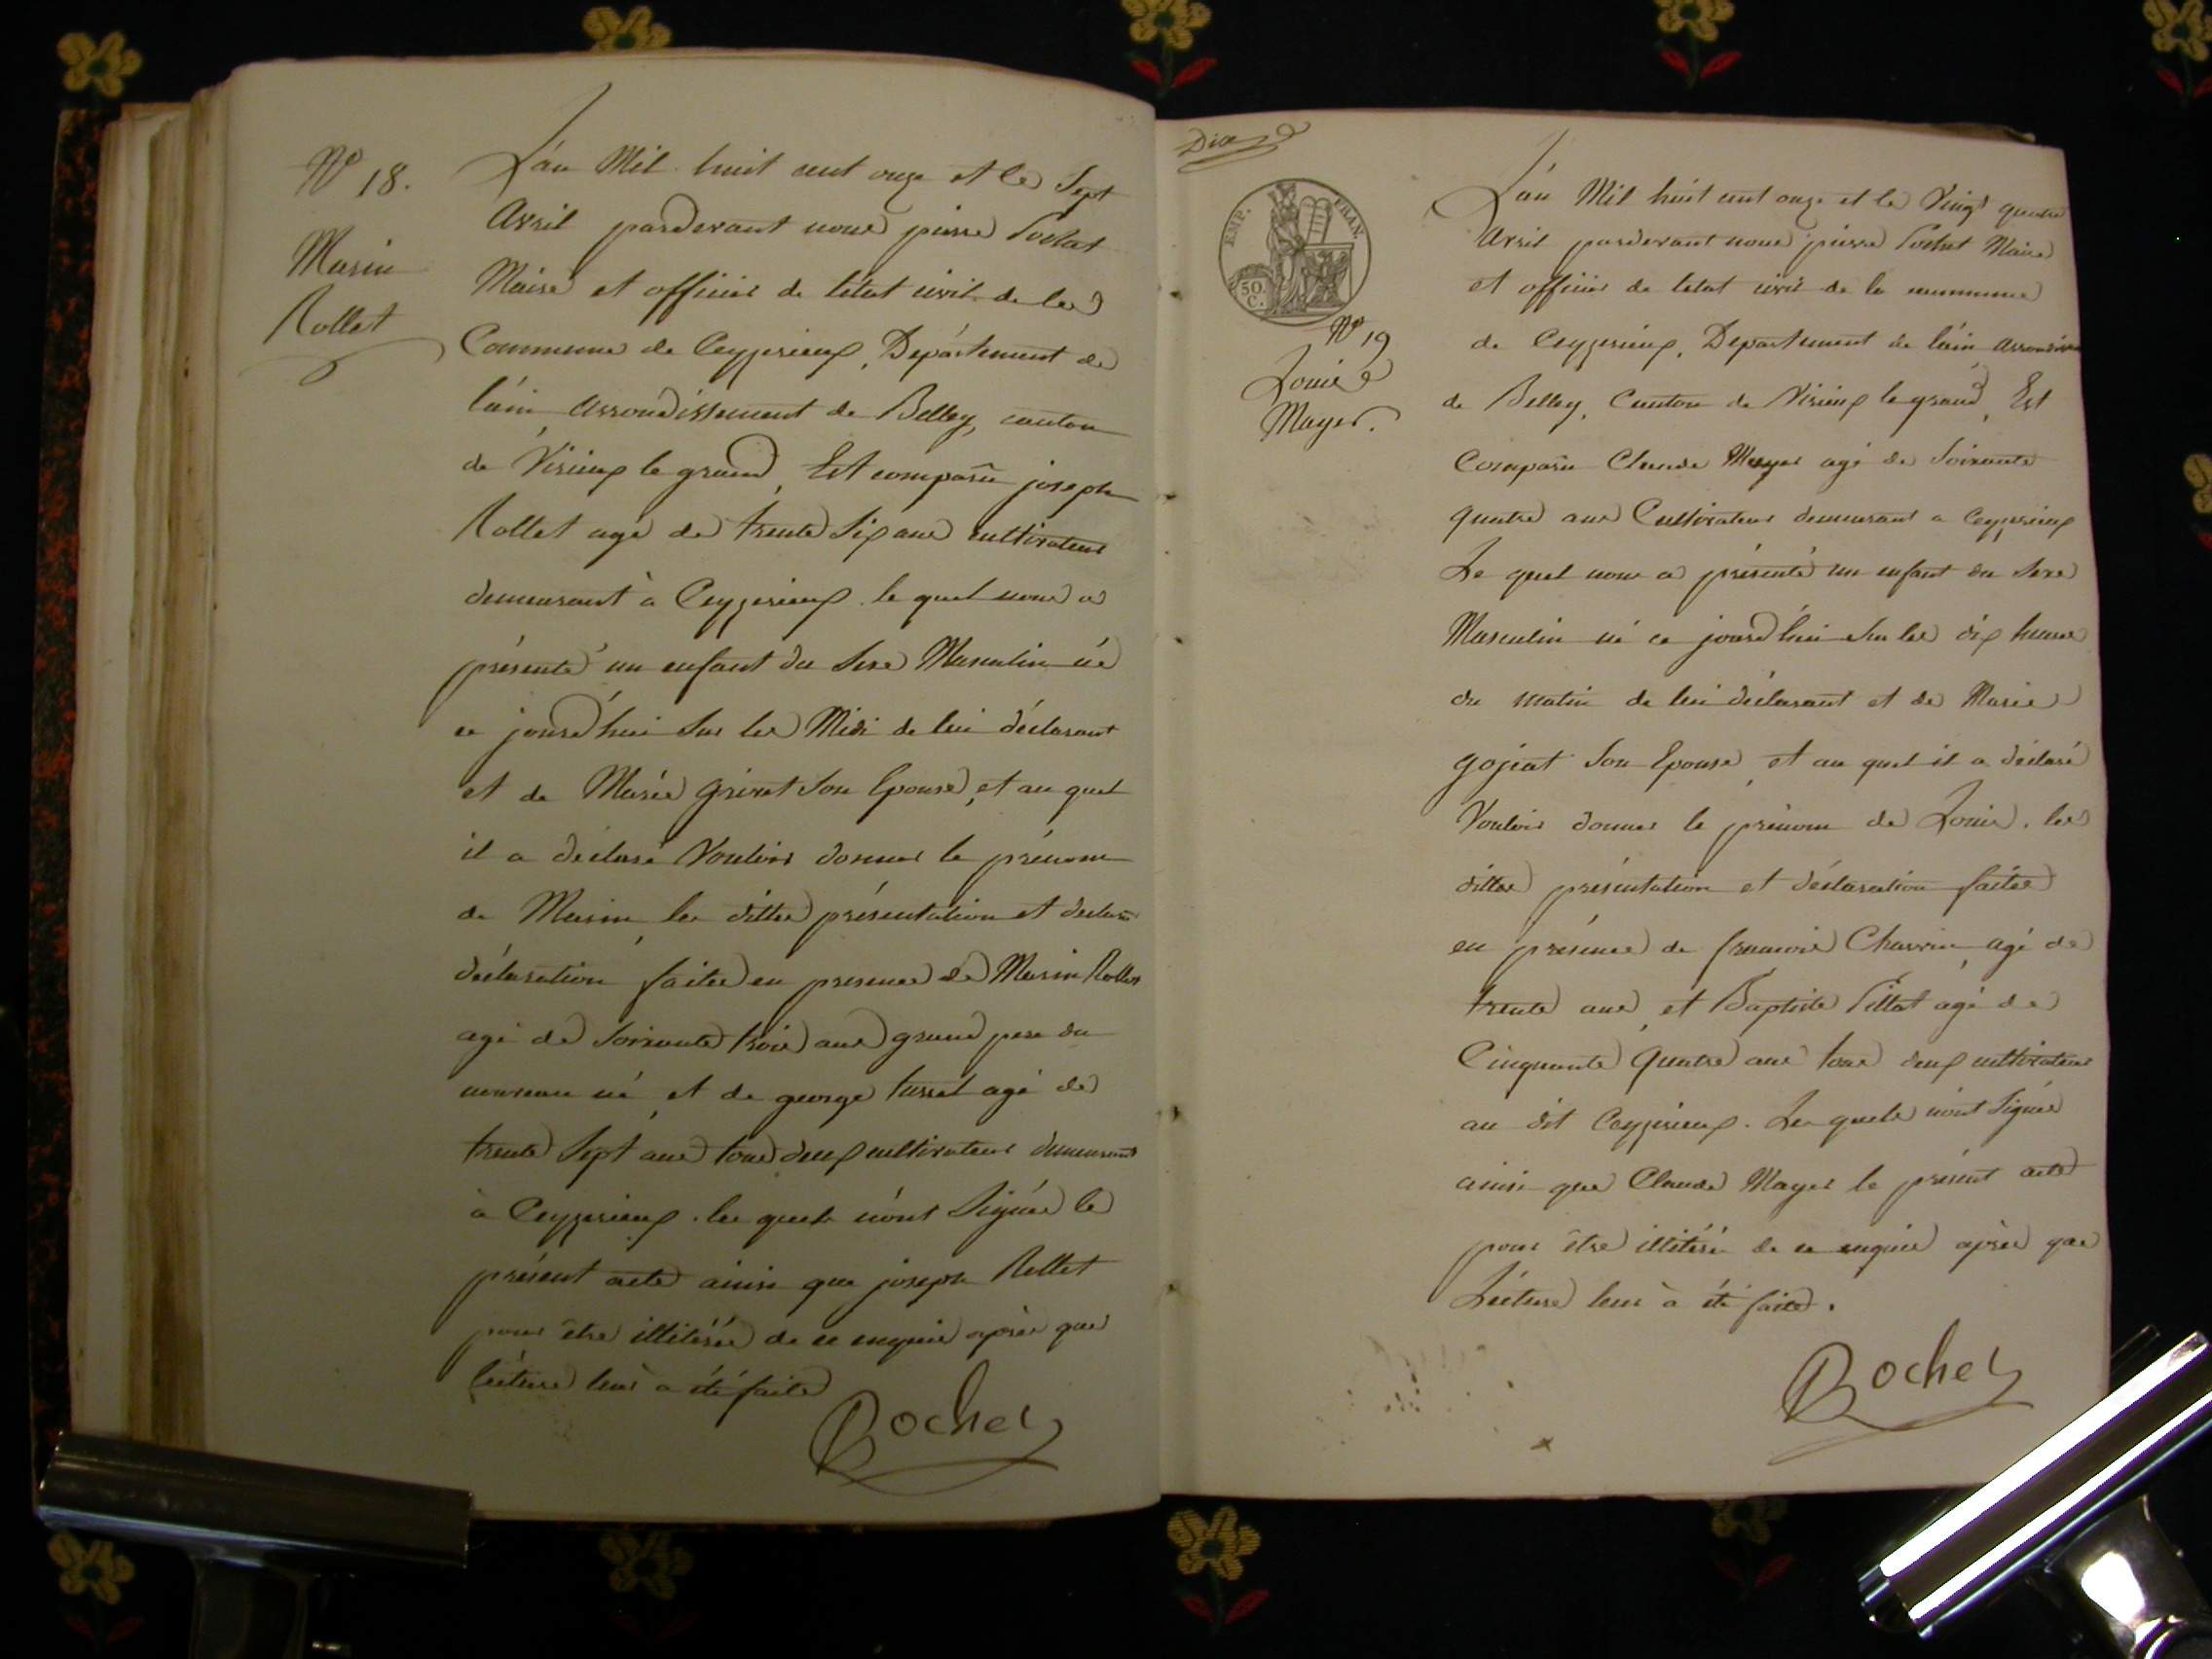 N° 18.
Marin
Rollet
L'an Mil huit cent onze et le Sept
Avril pardevant nous pierre Pochet
Maire et officier de létat civil de la
Commune de Ceyzerieux, Département de
l'ain, arrondissement de Belley, canton
de Virieux le grand, Est comparu joseph
Rollet agé de trente Six ans cultivateur
demeurant à Ceyzerieux. le quel nous a
présenté un enfant du Sexe Masculin né
ce jourd'hui Sur les Midi de lui déclarant
et de Marie Grivet Son Epouse, et au quel
il a déclaré Vouloir donner le prénom
de Marin, les dittes présentation et
déclaration faites en presence de Marin Rollet
agé de Soixante trois ans grand pere du
nouveau né, et de george agé de
trente Sept ans tous deux cultivateurs demeurant
à Ceyzerieux. les quels n'ont Signés le
présent acte ainsi que joseph Rollet
pour être illitérés de ce enquis après que
lécture leur à été faite
Rochet
Dix
EMP. FRAN.
50.
C.
N° 19
Louis
Mayer.
L'an Mil huit cent onze et le Vingt quatre
Avril pardevant nous pierre Pochet Maire
et officier de létat civil de la commune
de Ceyzerieux, Departement de l'ain
de Belley, Canton de Virieux le grand, Est
Comparu Claude Mayer agé de Soixante
quatre ans Cultivateur demeurant a Ceyzerieux
Le quel nous a présenté un enfant du Sexe
Masculin né ce jourd'hui Sur les dix heures
du matin de lui déclarant et de Marie
gojeat Son Epouse, et au quel il a déclaré
Vouloir donner le prénom de Louis. les
dittes présentation et déclaration faites
en présence de françois Charvin, agé de
trente ans, et Baptiste Pillat agé de
Cinquante Quatre ans tous deux cultivateurs
au dit Ceyzerieux. Les quels n'ont Signés
ainsi que Claude Mayer le présent acte
pour être illitérés de ce enquis après que
Lécture leur à été faite.
Rochet